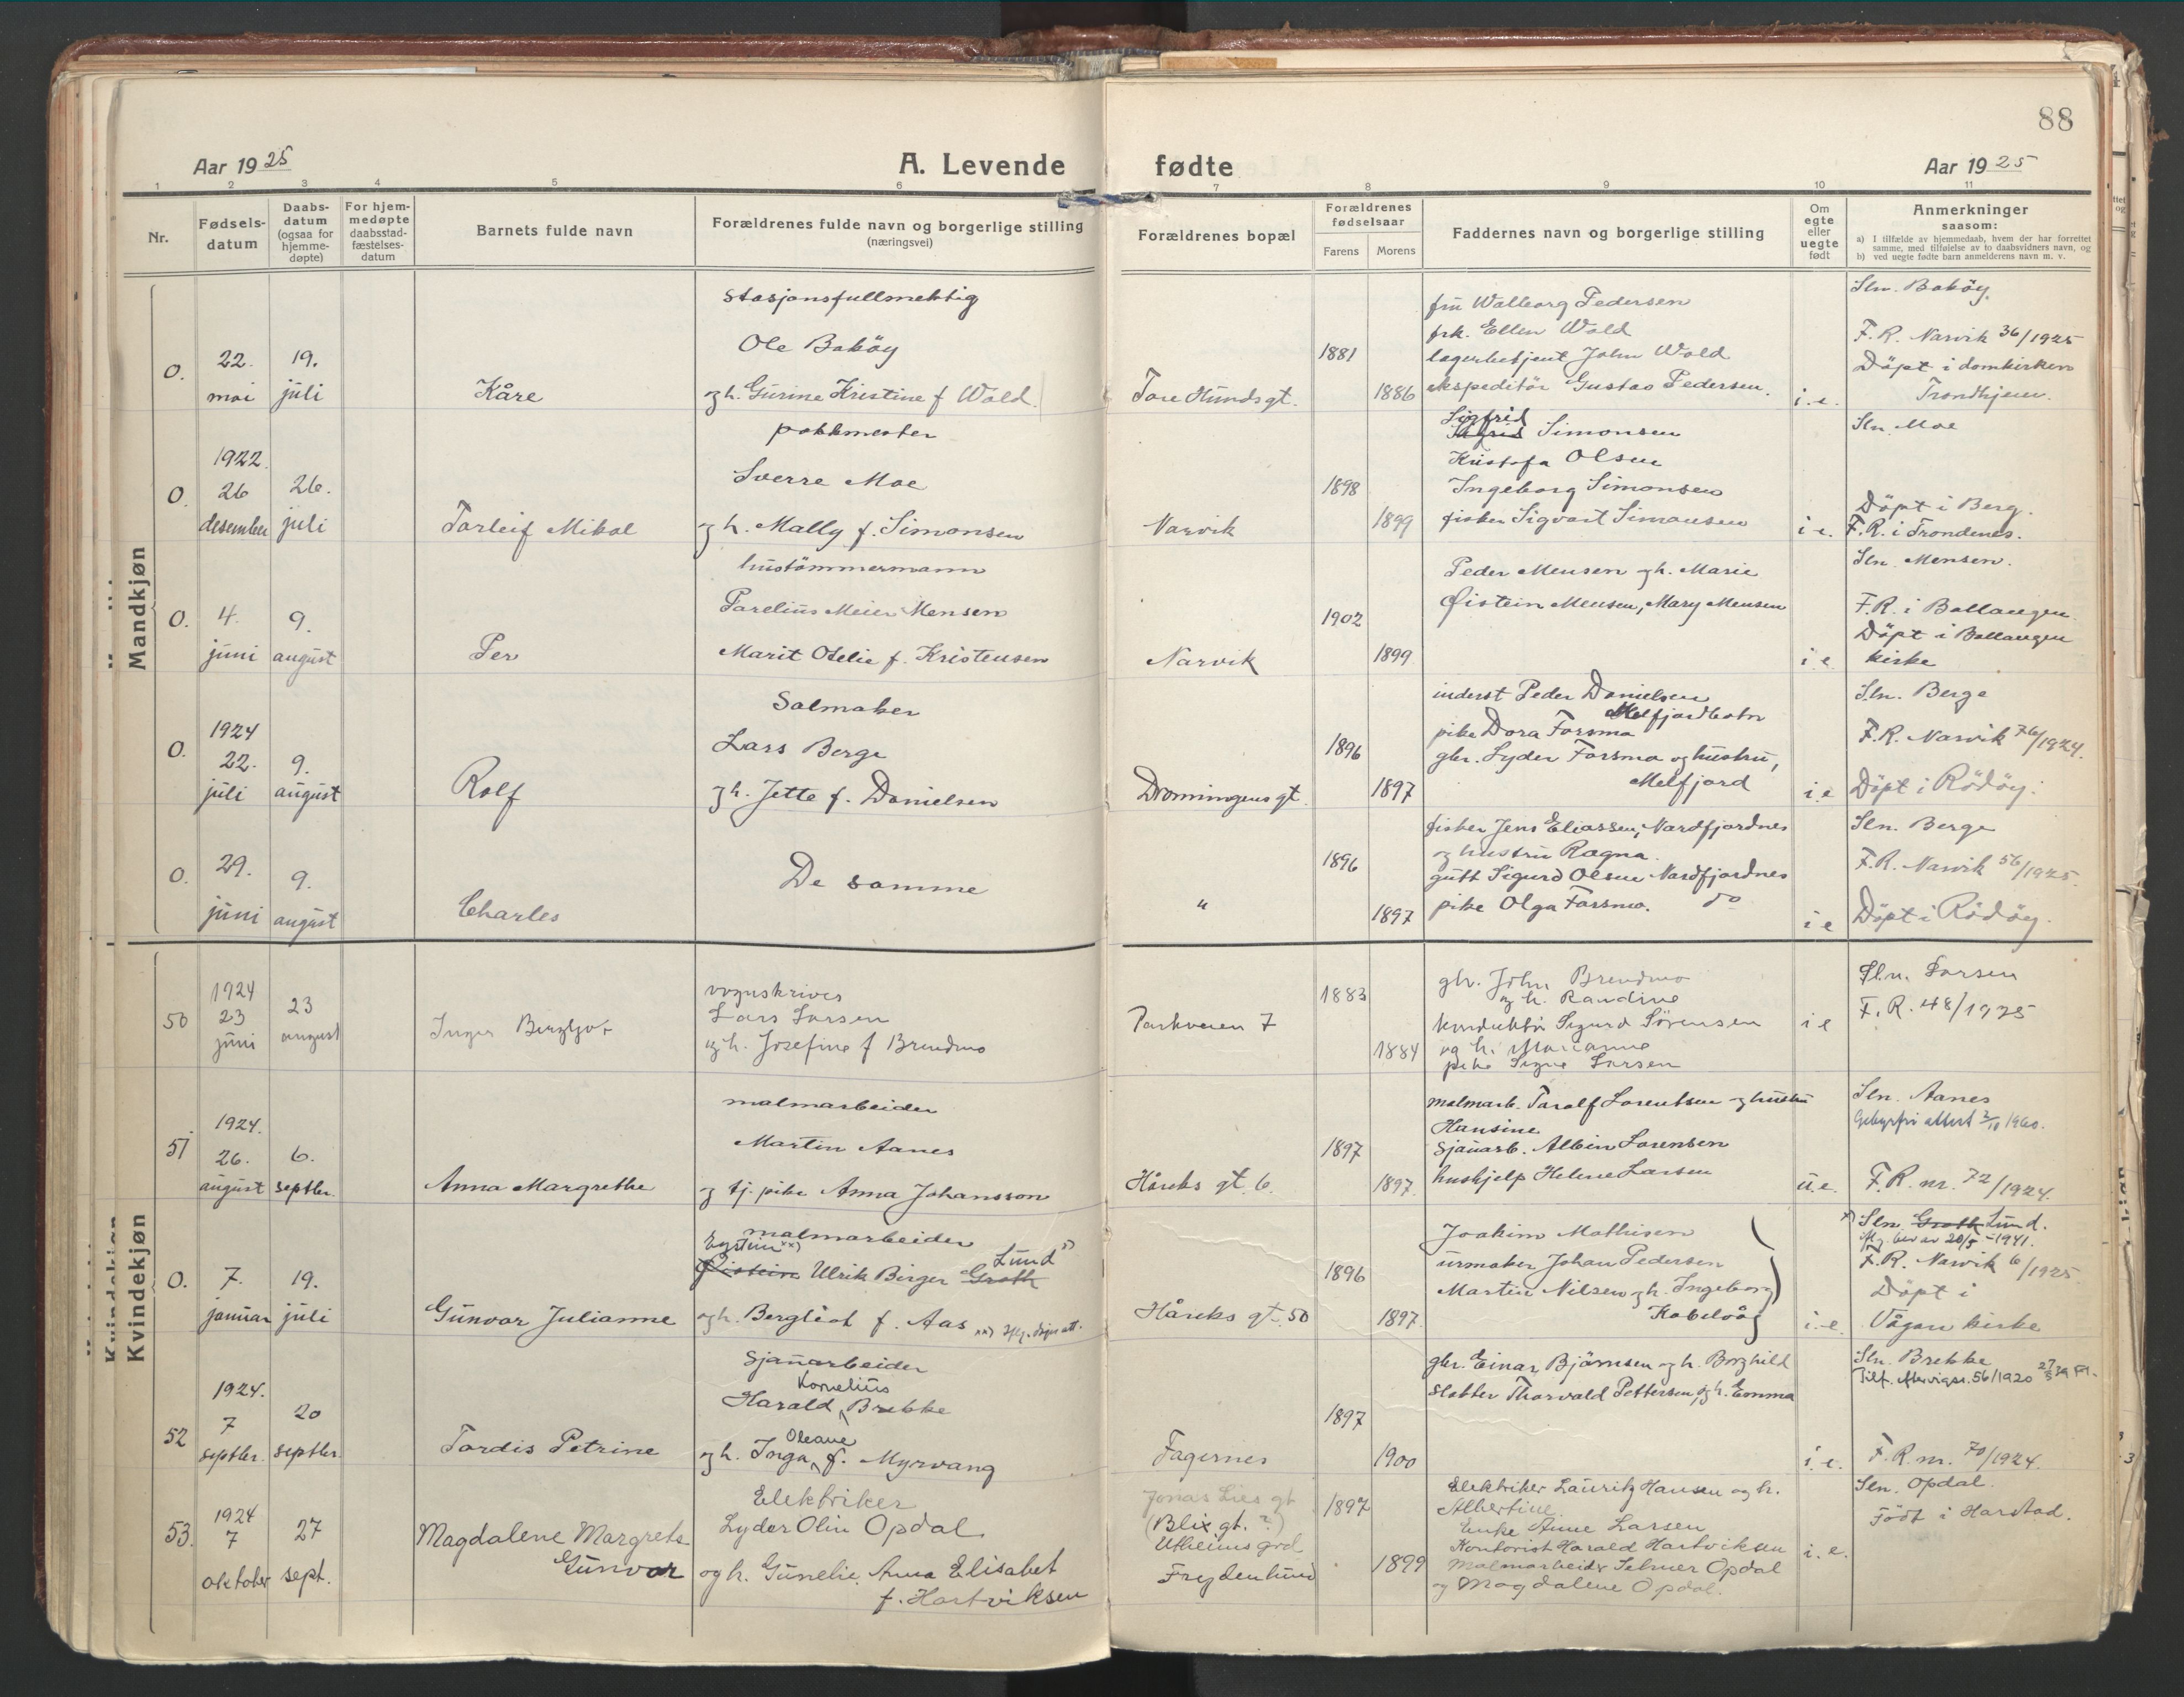 88
Aar 1925
A. Levende fødte
Aar 1925
1 2 3 4 5 6 7 8 9 10 11
Nr.
Fødsels-
datum
Daabs-
datum
(ogsaa for
hjemme-
døpte)
For hjem-
medøpte
daabsstad-
fæstelses-
datum
Barnets fulde navn
Forældrenes fulde navn og borgerlige stilling
(næringsvei)
Forældrenes bopæl
Forældrenes
fødselsaar
Farens Morens
Faddernes navn og borgerlige stilling
Om
egte
eller
uegte
født
Anmerkninger
saasom:
a) I tilfælde av hjemmedaab, hvem der har forrettet
samme, med tilføielse av to daabsvidners navn, og
b) ved uegte fødte barn anmelderens navn m. v.
Mandkjøn
0.
22.
mai
19.
juli
Kåre
Stasjonsfullmektig
Ole Baköy
og h. Gurine Kristine f Wold
Tore Hundsgt.
1881
1886
fru Walborg Pedersen
frk. Ellen Wold
lagerbetjent John Wold
ekspeditör Gustav Pedersen.
i.e.
Sln. Baköy.
F.R. Narvik 36/1925
Döpt i domkirken
Trondhjem.
0.
1922.
26
desember
26.
juli
Torleif Mikal
pakkmester
Sverre Moe
og h. Mally f. Simonsen
Narvik
1898
1899
Sigfrid
Simonsen
Kristofa Olsen
Ingeborg Simonsen
fisker Sigvart Simonsen
i e.
Sln. Moe
Döpt i Berg.
F.R. i Trondenes.
0.
4.
juni
9.
august
Per
hustömmermann
Parelius Meier Mensen
Marit Otelie f. Kristensen
Narvik
1902
1899
Peder Mensen og h. Marie
Øistein Mensen, Mary Mensen
i e.
Sln. Mensen.
F.R. i Ballangen.
Döpt i Ballangen
kirke
0.
1924
22.
juli
9.
august
Rolf
Salmaker
Lars Berge
og h. Jette f. Danielsen
Dronningensgt.
1896
1897
inderst Peder Danielsen
Melfjordbotn
pike Dora Forsmo
gbr. Lyder Forsmo og hustru,
Melfjord
i e
Sln. Berge
F.R. Narvik 76/1924.
Döpt i Rödöy.
0.
29.
juni
9.
august
Charles
De samme
"
1896
1897
fisker Jens Eliassen, Nordfjordnes
og hustru Ragna.
gutt Sigurd Olsen Nordfjordnes
pike Olga Forsmo. do
i e
Sln. Berge
F.R. Narvik 56/1925.
Döpt i Rödöy.
Kvindekjøn
50
1924
23
juni
23
august
Inger Bergljot
vognskriver
Lars Larsen
og h. Josefine f Brendmo
Parkveien 7
1883
1884
gbr. John Brendmo
og h. Randine
konduktör Sigurd Sörensen
og h. Marianne
pike Signe Larsen
i e
Sln. Larsen
F.R. 48/1925
51
1924.
26.
august
6.
septbr.
Anna Margrethe
malmarbeider
Martin Aanes
og tj. pike Anna Johansson
Håreks gt. 6.
1897
1897.
malmarb. Toralf Lorentsen og hustru
Hansine
Sjauarb. Albin Lorensen
hushjelp Helene Larsen
u.e.
Sln. Aanes
Gebyrfri attest 3/10 1960.
F.R. nr. 72/1924.
0.
7.
januar
19.
juli
Gunvor Julianne
malmarbeider
Eystein xx) Lund x)
Øistein Ulrik Birger Groth
og h. Bergliot f. Aas xx)
Håreks gt. 50
1896
1897.
Joakim Mathisen
urmaker Johan Pedersen
Martin Nilsen og h. Ingeborg
Kabelvåg
i.e.
x) Sln. Groth Lund.
iflg. bev av 20/5-1941.
F.R. Narvik 6/1925.
Döpt i
Vågan kirke
52
1924.
7
septbr.
20
septbr.
Tordis Petrine
Sjauarbeider
Kornelius
Harald Brekke
Oleane
og h. Inga f. Myrvang
Fagernes
1897
1900
gbr. Einar Björnsen og h. Borghild
Slakter Thorvald Pettersen og h. Emma
i.e.
Sln. Brekke
F.R. nr. 70/1924.
53.
1924
7
oktober
27
sept.
Magdalene Margrete
Gunvor
Elektriker
Lyder Olin Opdal
og h. Gunelie Anna Elisabet
f. Hartviksen
Jonas Lies gt
(Blix gt. ?)
Frydenlund
1897
1899
Elektriker Lauritz Hansen og h.
Albertine
Enke Anne Larsen
Kontorist Harald Hartviksen
Malmarbeider Selmer Opdal
og Magdalene Opdal.
i.e.
Sln. Opdal.
Födt i Harstad.